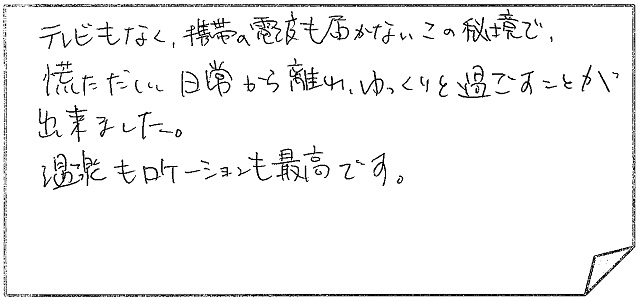 テレビもなく、携帯の電波も届かないこの秘境で、
慌ただしい日常から離れ、ゆっくりと過ごすことが
出来ました。
温泉もロケーションも最高です。